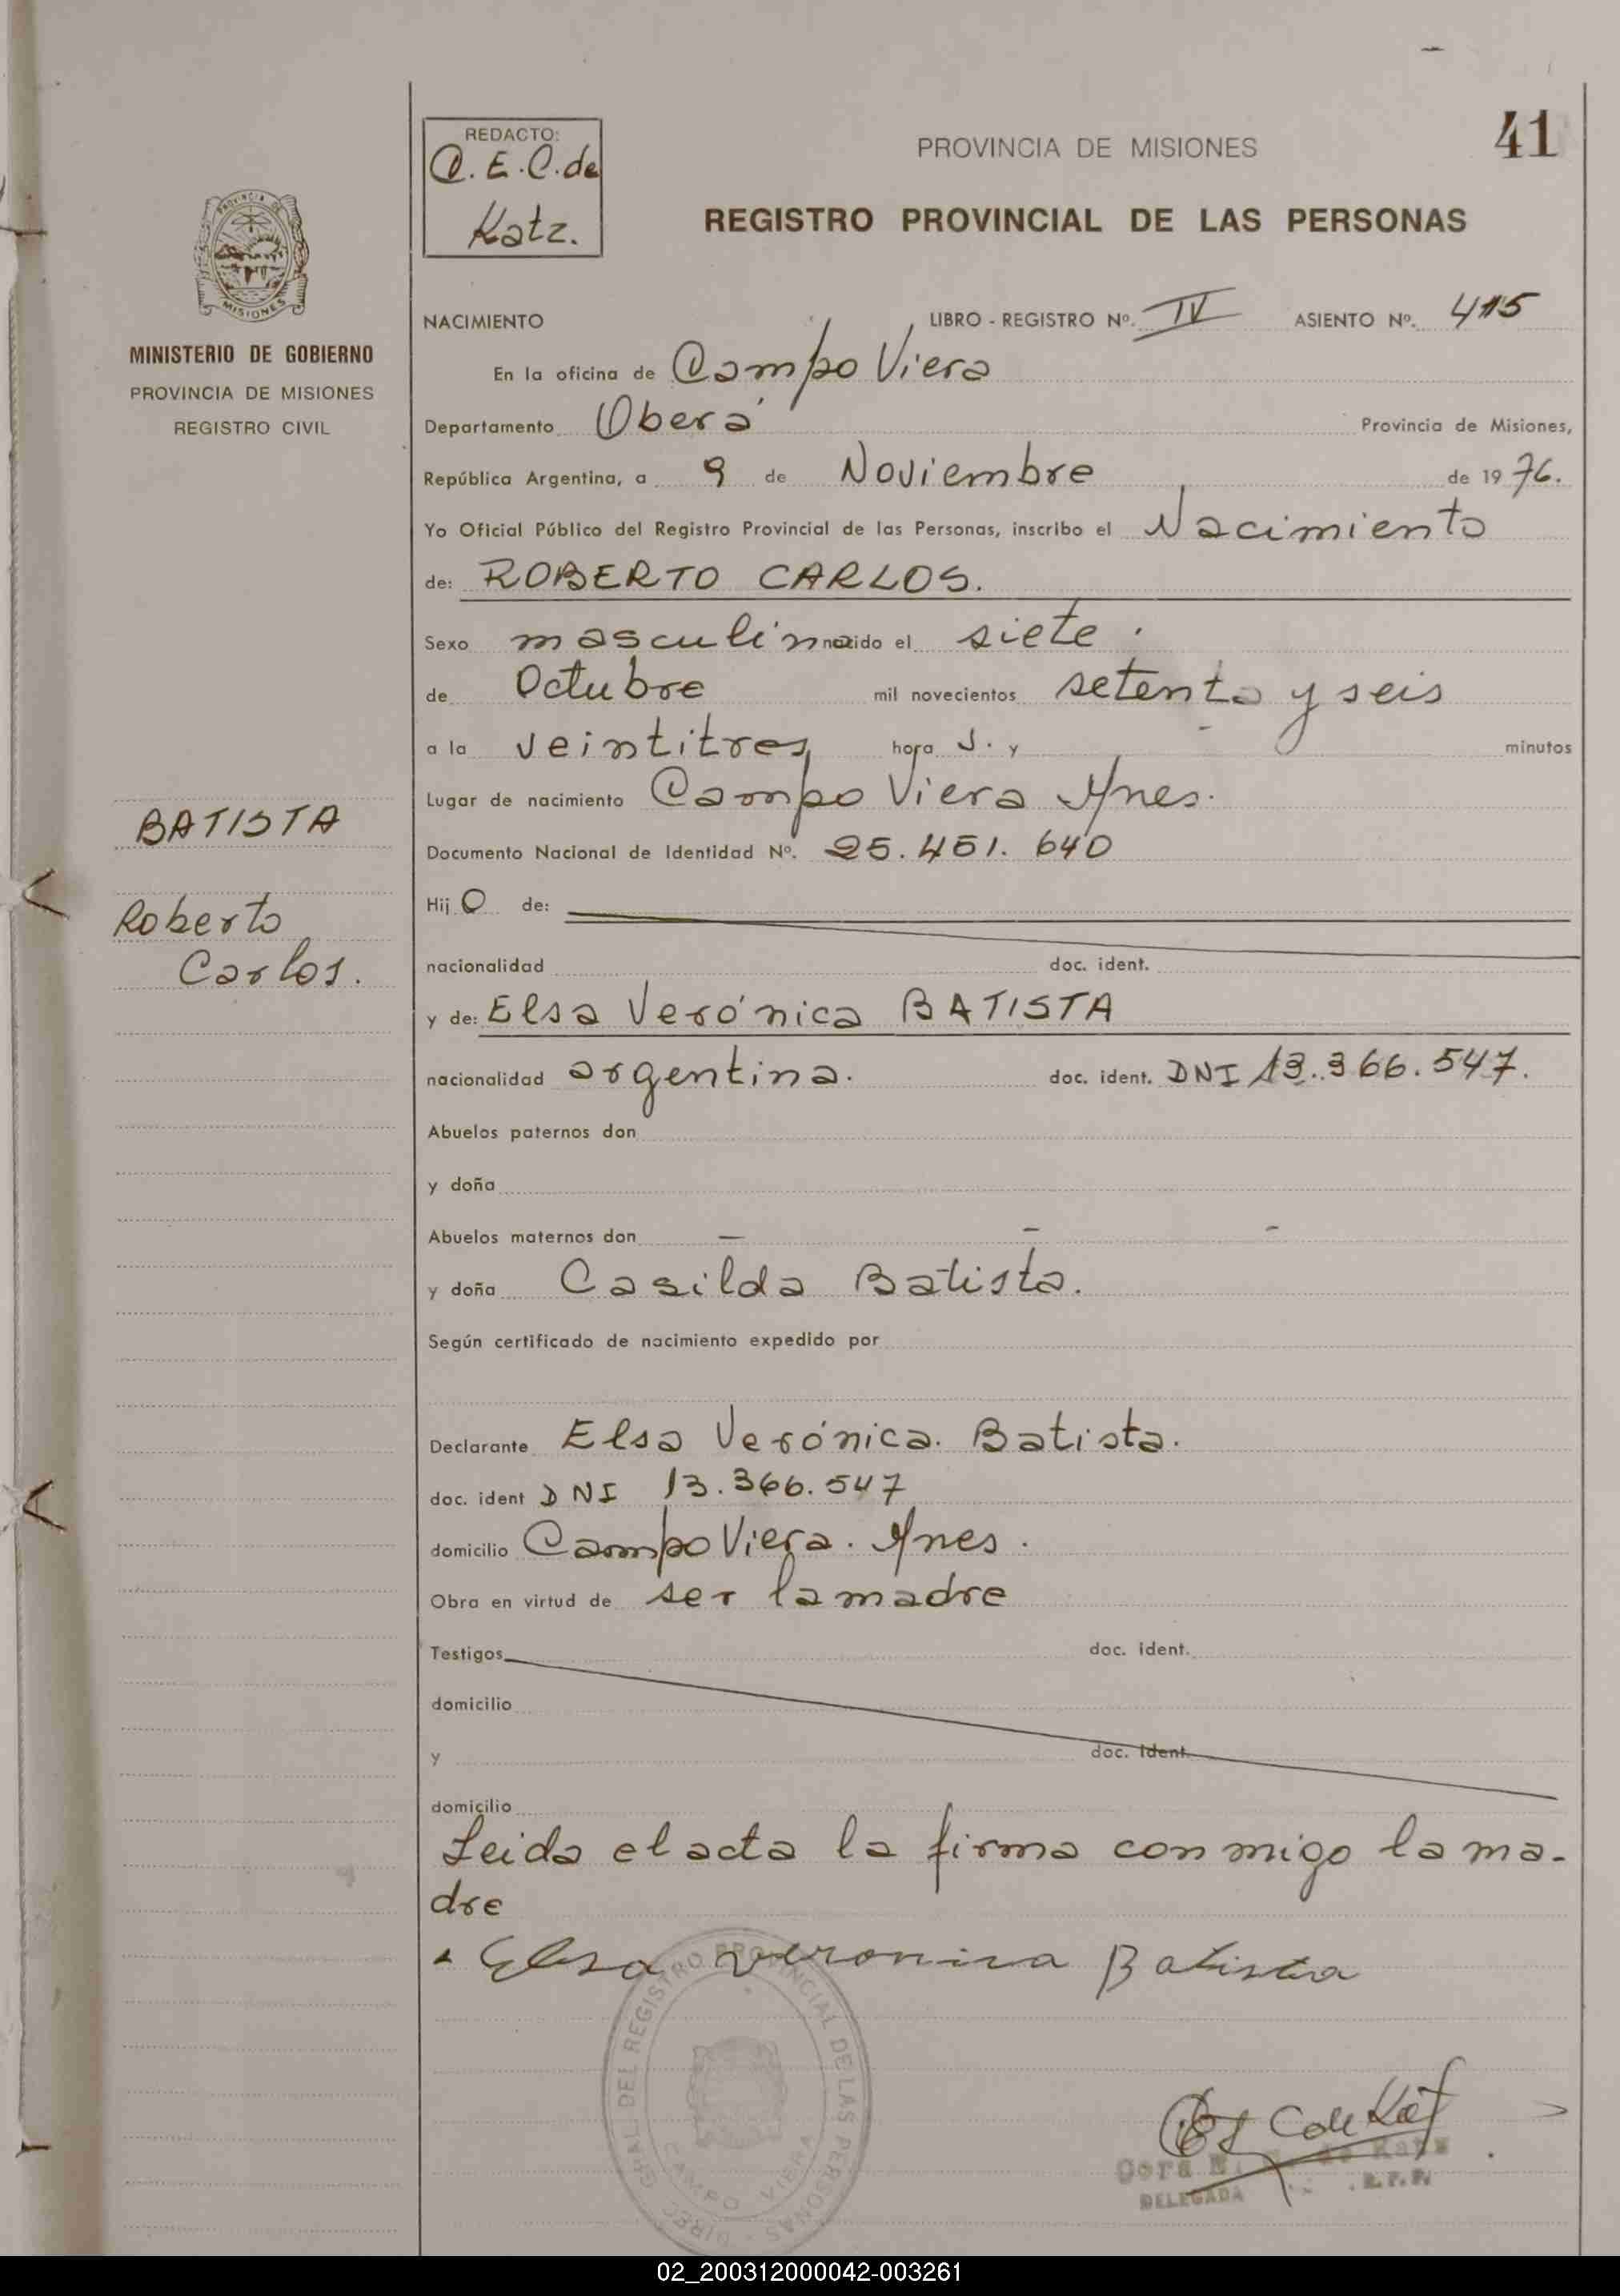 41
REDACTO:
C. E. C. de
Katz.
PROVINCIA DE MISIONES
REGISTRO PROVINCIAL DE LAS PERSONAS
PROVINCIA DE
MISIONES
MINISTERIO DE GOBIERNO
PROVINCIA DE MISIONES
REGISTRO CIVIL
NACIMIENTO LIBRO - REGISTRO Nº. IV ASIENTO Nº. 415
En la oficina de Campo Viera
Departamento Oberá Provincia de Misiones,
República Argentina, a 9 de Noviembre de 1976.
Yo Oficial Público del Registro Provincial de las Personas, inscribo el Nacimiento
de: ROBERTO CARLOS.
Sexo masculino nacido el siete
de Octubre mil novecientos setenta y seis
a la veintitres hora s. y minutos
Lugar de nacimiento Campo Viera Ynes.
BATISTA
Documento Nacional de Identidad Nº. 25.451.640
Hij O de:
Roberto
Carlos.
nacionalidad doc. ident.
y de: Elsa Verónica BATISTA
nacionalidad argentina. doc. ident. DNI 13.366.547.
Abuelos paternos don
y doña
Abuelos maternos don — - -
y doña Casilda Batista.
Según certificado de nacimiento expedido por
Declarante Elsa Verónica. Batista.
doc. ident DNI 13.366.547
domicilio Campo Viera. Ynes.
Obra en virtud de ser la madre
Testigos doc. ident.
domicilio
y doc. ident.
domicilio
Leida el acta la firma conmigo la ma-
dre
Elsa veronica Batista
DIREC. GRAL. DEL REGISTRO PROVINCIAL DE LAS PERSONAS
CAMPO VIERA
C de Katz
de Katz
DELEGADA R.P.P.
02_200312000042-003261